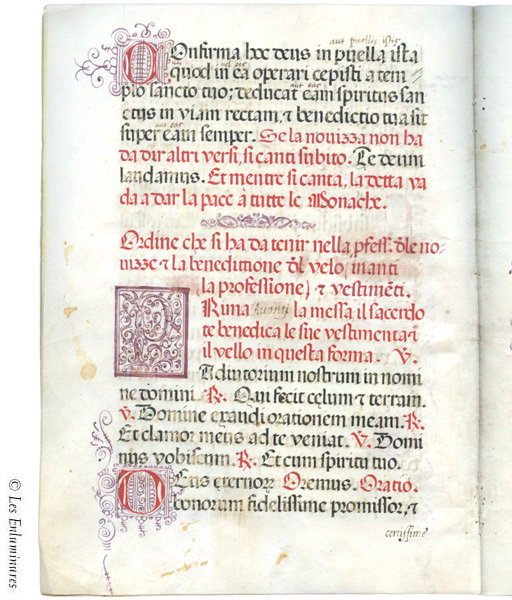 aut puellis istis
Confirma hoc deus in puella ista
vel eis
quod in ea operari cepisti a tem=
aut eas
plo sancto tuo; & educat eam spiritus san
ctus in viam rectam, & benedictio tua sit
aut eas
super eam semper. Se la nouizza non ha
da dir altri versi, si canti subito. Te deum
laudamus. Et mentre si canta, la detta va
da a dar la pace à tutte le Monache.
Ordine che si ha da tenir nella pfess. dle no-
uizze & la benedictione dl velo (inanti
la professione) & vestimẽti.
PRima Auanti la messa il sacerdo
te benedica le sue vestimenta &
il vello in questa forma. V.
Adiutorium nostrum in nomi
ne domini. R. Qui fecit cęlum & terram.
V. Domine exaudi orationem meam. R.
Et clamor meus ad te veniat. V. Domi
nus vobiscum. R. Et cum spiritu tuo.
DEus eternorȝ Oremus. Oratio.
bonorum fidelissime promissor, &
certissime
© Les Enluminures